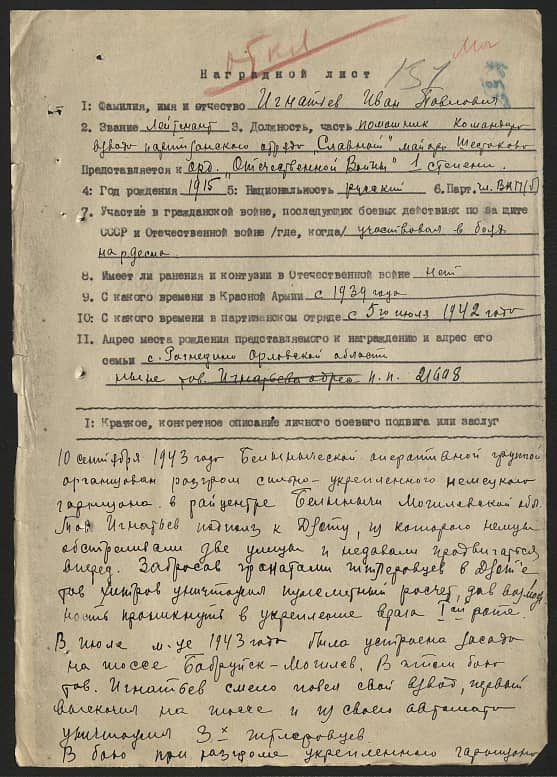 151
Наградной лист
1: Фамилия, имя и отчество Игнатьев Иван Павлович
2. Звание Лейтенант 3. Должность, часть помошник командира
взвода партизанского отряда "Славный" майора Шестакова
Представляется к орд. "Отечественной Войны" 1 степени
4: Год рождения 1915 5: Национальность русский 6. Парт. чл. ВКП(б)
7. Участие в гражданской войне, последующих боевых действиях по защите
СССР и Отечественной войне /где, когда/ участвовал в боях
на
8. Имеет ли ранения и контузии в Отечественной войне нет
9. С какого времени в Красной Армии с 1939 года
10: С какого времени в партизанском отряде с 5го июля 1942 года
11. Адрес места рождения представляемого к награждению и адрес его
семьи с. Орловской области
тов. Игнатьева адрес п.п. 21698
1: Краткое, конкретное описание личного боевого подвига или заслуг
10 сентября 1943 года Белыничской оперативной группой
организован разгром сильно-укрепленного немецкого
гарнизона в райцентре Белыничи Могилевской обл.
Игнатьев подполз к Дзоту, из которого немцы
обстреливали две улицы и недавали продвигаться
вперед. Забросав гранатами гитлеровцев в Дзот'е
уничтожил пулеметный расчет, дав возмож
ность проникнуть в укрепление врага 1ой роте.
В июле м-це 1943 года была устроена засада
на шоссе Бобруйск-Могилев. В этом бою
тов. Игнатьев смело повел свой взвод, первый
выскочил на шоссе и из своего автомата
уничтожил 3х гитлеровцев
В бою при разгроме укрепленного гарнизона